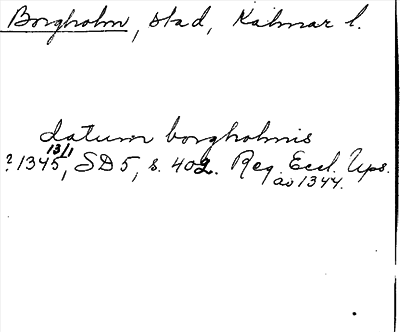 Borgholm, stad, Kalmar l.
datum borgholmis
13/1
? 1345, SD 5, s. 402. Reg. Eccl. Ups.
av 1344.